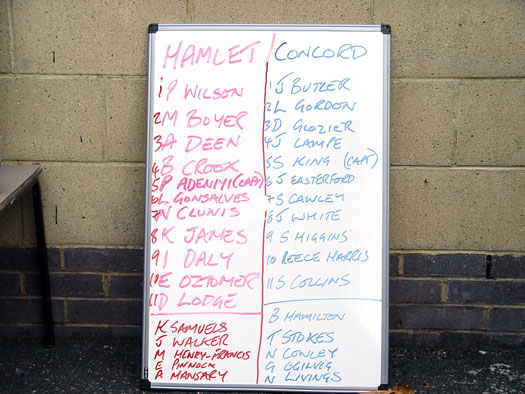 HAMLET / CONCORD
1 P WILSON
2 M BOYER
3 A DEEN
4 B CROOK
5 P ADENIYI (CAPT)
6 L GONSALVES
7 N CLUNIS
8 K JAMES
9 I DALY
10 E OZTOMER
11 D LODGE
K SAMUELS
J WALKER
M HENRY-FRANCIS
E PINNOCK
A MANSARY
1 J BUTLER
2 L GORDON
3 D GLOZIER
4 J LAMPE
5 S KING (CAPT)
6 J EASTERFORD
7 S CAWLEY
8 J WHITE
9 S HIGGINS
10 REECE HARRIS
11 S COLLINS
B HAMILTON
T STOKES
N COWLEY
G OGILVIE
N LIVINGS